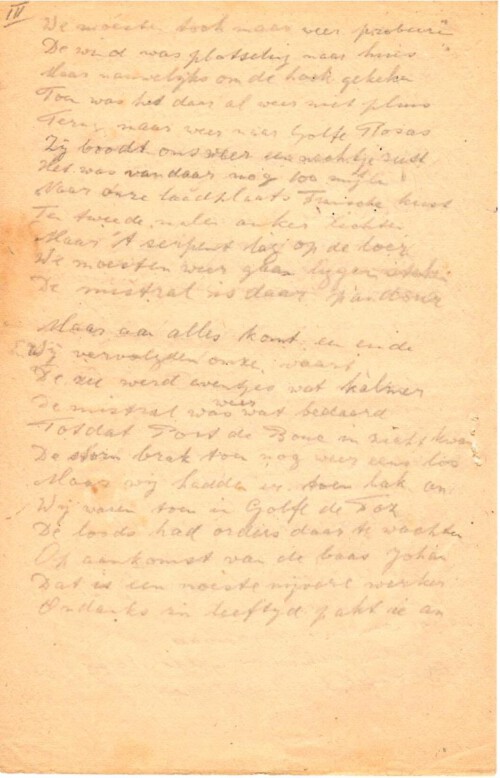 IV
We moesten toch maar weer probeeren
De wind was plotseling naar huis
Maar nauwelijks om de hoek gekeken
Toen was het daar al weer niet pluis
Terug naar weer naar Golfe Rosas
Zij boodt ons weer een nachtje rust
Het was van daar nog 100 mijlen
Naar onze laadplaats Fransche kust
Ten tweede malen anker lichten
Maar 't serpent lag op de loer
We moesten weer gaan liggen
De mistral is daar
Maar aan alles komt een einde
Wij vervolgden onze vaart
De zee werd eventjes wat kalmer
De mistral was weer wat bedaard
Totdat Port de Bouc in zicht kwam
De storm brak toen nog weer eens los
Maar wij hadden er toen lak an
Wij waren toen in Golfe de Fos
De loods had orders daar te wachten
Op aankomst van de baas Johan
Dat is een noeste nijvere werker
Ondanks zn leeftijd pakt ie an